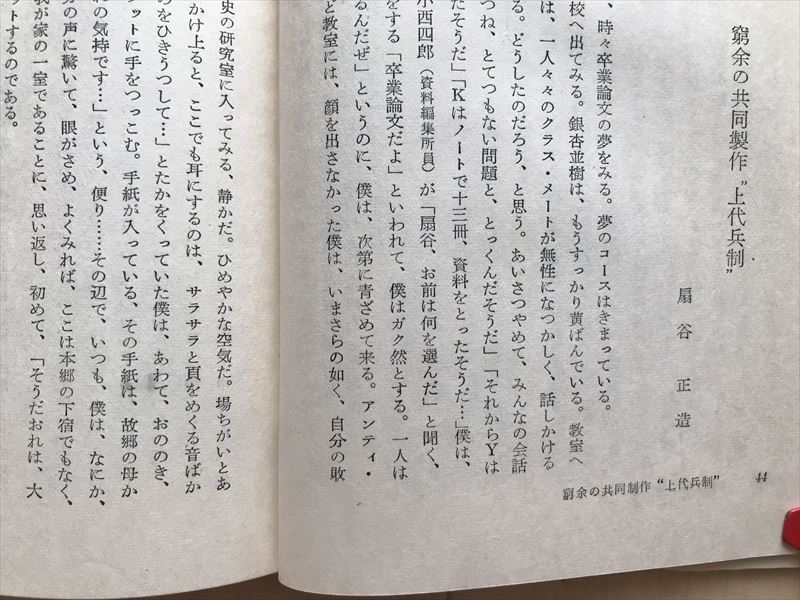 窮余の共同製作 “上代兵制”
扇谷正造
、時々卒業論文の夢をみる。夢のコースはきまっている。
校へ出てみる。銀杏並樹は、もうすっかり黄ばんでいる。教室へ
は、一人々々のクラス・メートが無性になつかしく、話しかける
る。どうしたのだろう、と思う。あいさつやめて、みんなの会話
つね、とてつもない問題と、とっくんだそうだ」「それからYは
たそうだ」「Kはノートで十三冊、資料をとったそうだ…」僕は、
小西四郎（資料編集所員）が「扇谷、お前は何を選んだ」と聞く、
をする「卒業論文だよ」といわれて、僕はガク然とする。一人は
るんだぜ」というのに、僕は、次第に青ざめて来る。アンティ・
ど教室には、顔を出さなかった僕は、いまさらの如く、自分の敗
44
窮余の共同制作 “上代兵制”
史の研究室に入ってみる、静かだ。ひめやかな空気だ。場ちがいとあ
かけ上ると、ここでも耳にするのは、サラサラと頁をめくる音ばか
のをひきうつして…」とたかをくくっていた僕は、あわて、おののき、
ットに手をつっこむ。手紙が入っている、その手紙は、故郷の母か
れの気持です…」という、便り……その辺で、いつも、僕は、なにか、
の声に驚いて、眼がさめ、よくみれば、ここは本郷の下宿でもなく、
我が家の一室であることに、思い返し、初めて、「そうだおれは、大
ットするのである。